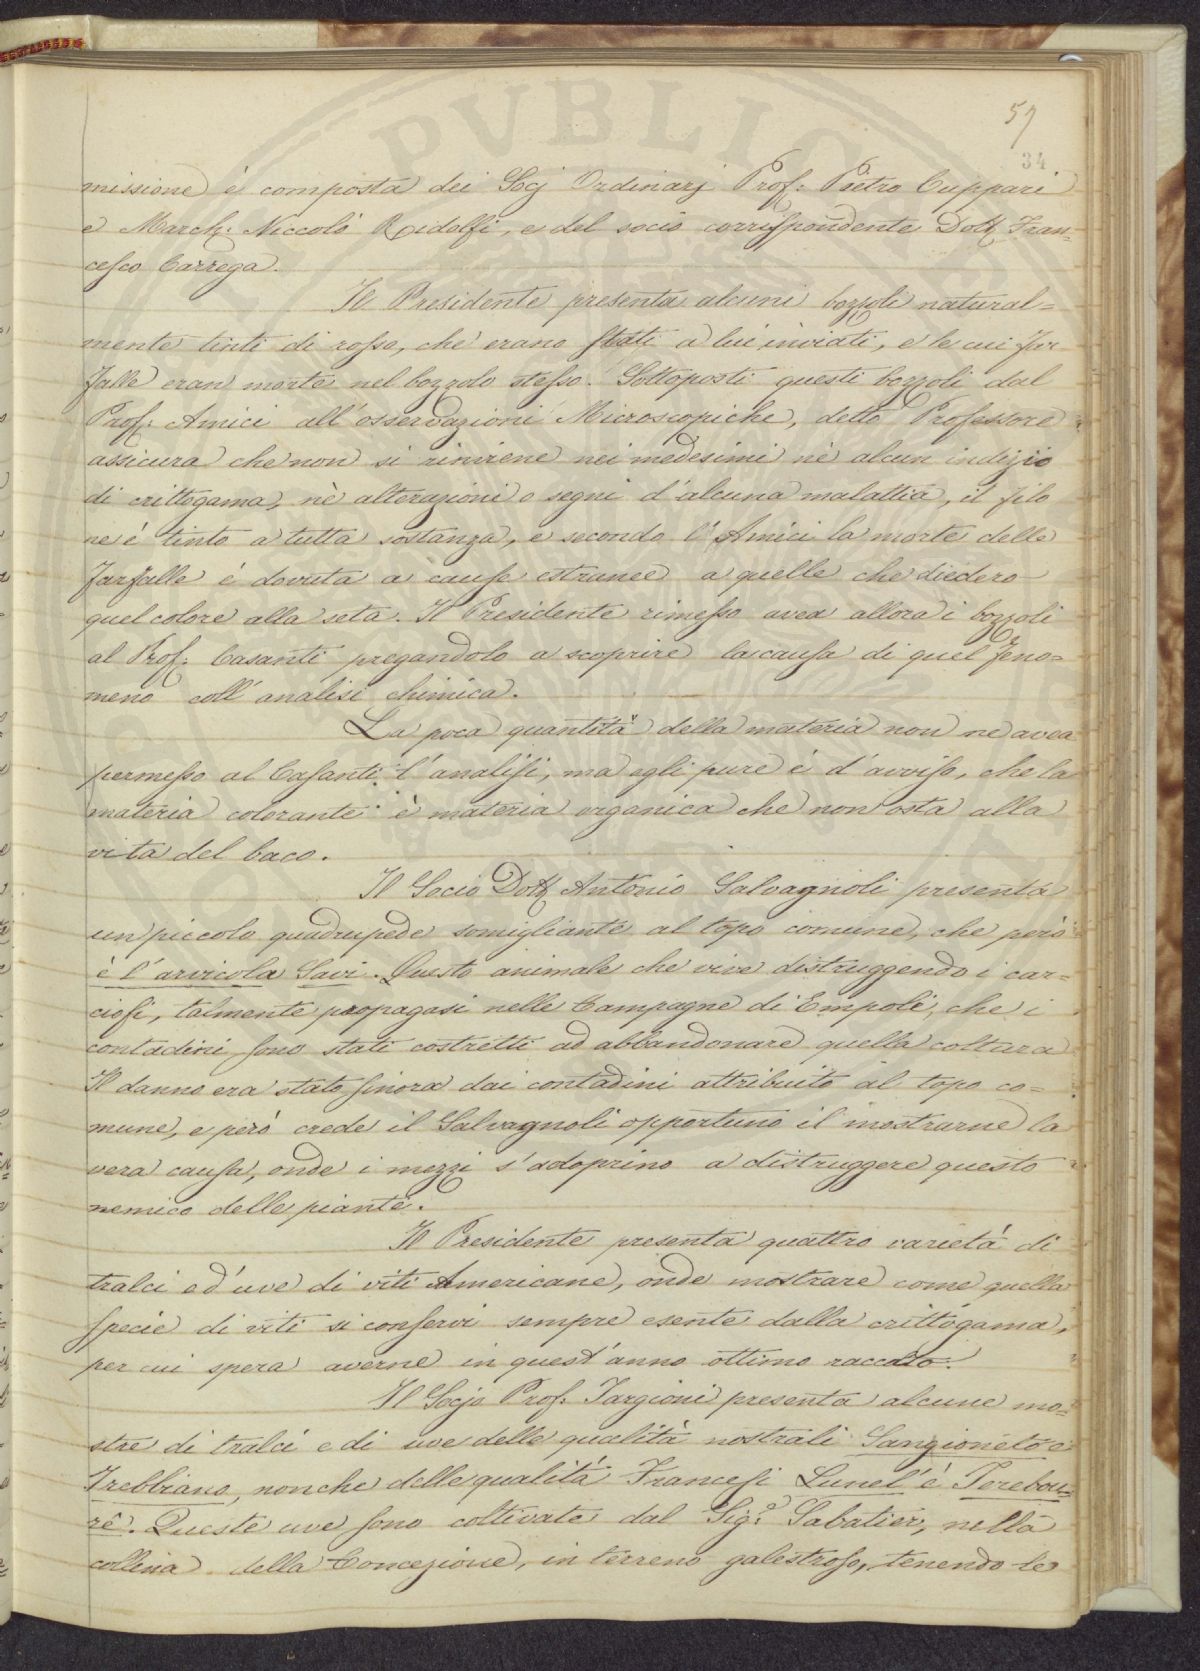 57
34
missione è composta dei Socj Ordinarj Prof: Pietro Cuppari
e March: Niccolò Ridolfi, e del socio corrispondente Dott. Fran=
cesco Carrega.
Il Presidente presenta alcuni bozzoli natural=
mente tinti di rosso, che erano stati a lui inviati, e le cui far
falle eran morte nel bozzolo stesso. Sottoposti questi bozzoli dal
Prof: Amici all'osservazioni Microscopiche, detto Professore
assicura che non si rinviene nei medesimi nè alcun indizio
di crittogama, nè alterazioni o segni d'alcuna malattia, il filo
ne è tinto a tutta sostanza, e secondo l'Amici la morte delle
farfalle è dovuta a cause estranee a quelle che diedero
quel colore alla seta. Il Presidente rimesso avea allora i bozzoli
al Prof: Casanti pregandolo a scoprire la causa di quel feno=
meno coll'analisi chimica.
La poca quantità della materia non ne avea
permesso al Casanti l'analisi, ma egli pure è d'avviso, che la
materia colorante è materia organica che non osta alla
vita del baco.
Il Socio Dott Antonio Salvagnoli presenta
un piccolo quadrupede somigliante al topo comune, che però
è l'arvicola Savi. Questo animale che vive distruggendo i car=
ciofi, talmente propagasi nelle Campagne di Empoli, che i
contadini sono stati costretti ad abbandonare quella coltura
Il danno era stato finora dai contadini attribuito al topo co=
mune, e però crede il Salvagnoli opportuno il mostrarne la
vera causa, onde i mezzi s'adoprino a distruggere questo
nemico delle piante.
Il Presidente presenta quattro varietà di
tralci ed uve di viti Americane, onde mostrare come quella
specie di viti si conservi sempre esente dalla crittogama,
per cui spera averne in quest'anno ottimo raccolto.
Il Socjo Prof: Targioni presenta alcune mo=
stre di tralci e di uve delle qualità nostrali Sangioneto e
Trebbiano, nonche delle qualità Francesi Lunel è Terebou=
rê. Queste uve sono coltivate dal Sig.e Sabatier, nella
collina della Concezione, in terreno galestroso, tenendo le